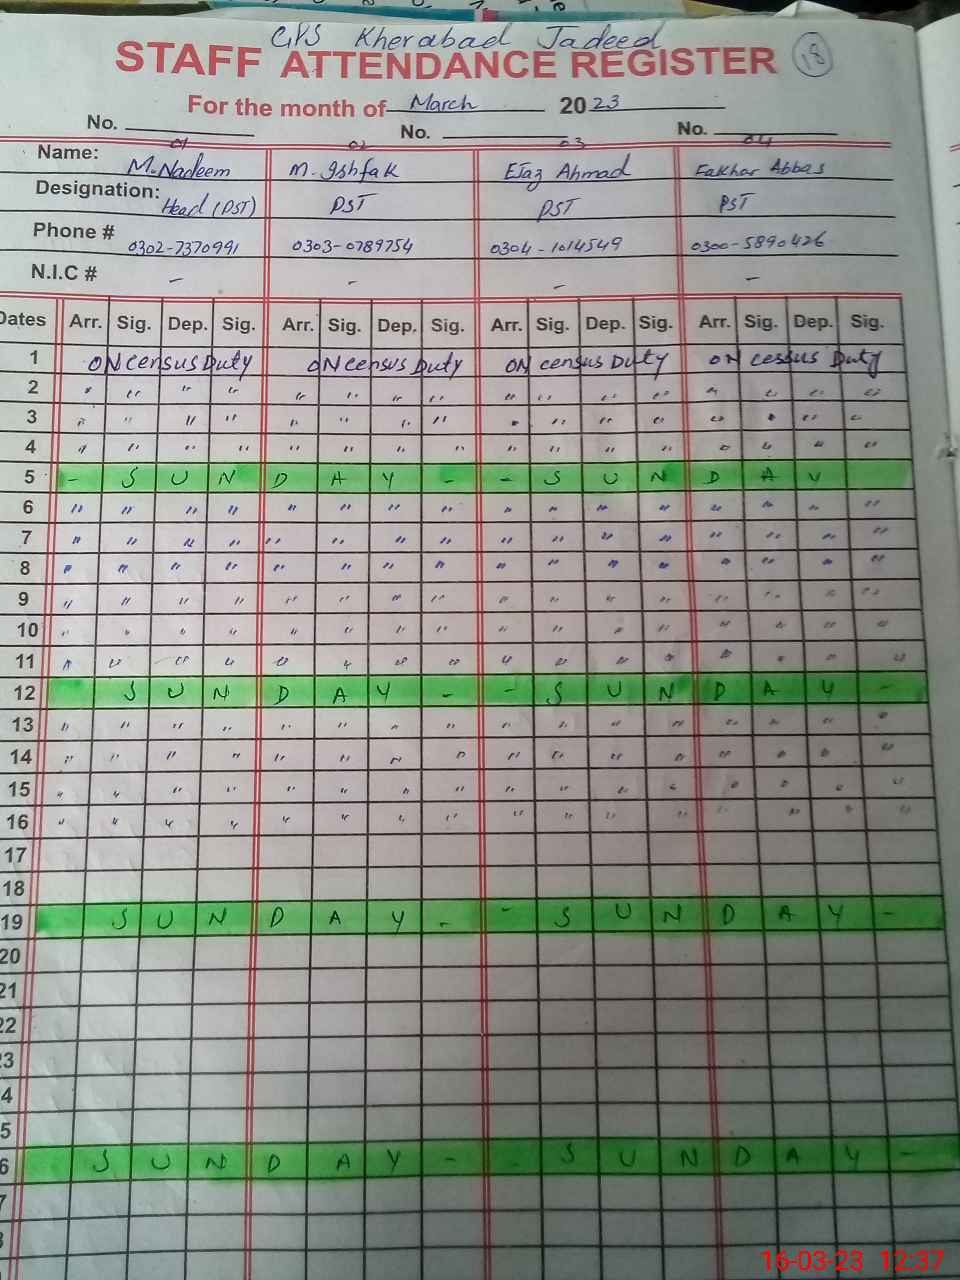 GPS Kherabad Jadeed
STAFF ATTENDANCE REGISTER 18
For the month of March 2023
No. 01 No. 02 03 No. 04
Name: M. Nadeem M. Ishfak EJaz Ahmad Fakhar Abbas
Designation: Head (PST) PST PST PST
Phone # 0302-7370991 0303-0789754 0304-1014549 0300-5890426
N.I.C # - - - -
Dates Arr. Sig. Dep. Sig. Arr. Sig. Dep. Sig. Arr. Sig. Dep. Sig. Arr. Sig. Dep. Sig.
1 ON census Duty ON census Duty ON census Duty ON cessus Duty
2 " " " " " " " " " " " " " " " "
3 " " " " " " " " " " " " " " " "
4 " " " " " " " " " " " " " " " "
5 - S U N D A Y - - S U N D A Y
6 " " " " " " " " " " " " " " " "
7 " " " " " " " " " " " " " " " "
8 " " " " " " " " " " " " " " " "
9 " " " " " " " " " " " " " " " "
10 " " " " " " " " " " " " " " " "
11 " " " " " " " " " " " " " " " "
12 S U N D A Y - - S U N D A Y -
13 " " " " " " " " " " " " " " " "
14 " " " " " " " " " " " " " " " "
15 " " " " " " " " " " " " " " " "
16 " " " " " " " " " " " " " " " "
17
18
19 S U N D A Y - - S U N D A Y -
20
21
22
23
4
5
6 S U N D A Y - - S U N D A Y -
7
16-03-23 12:37